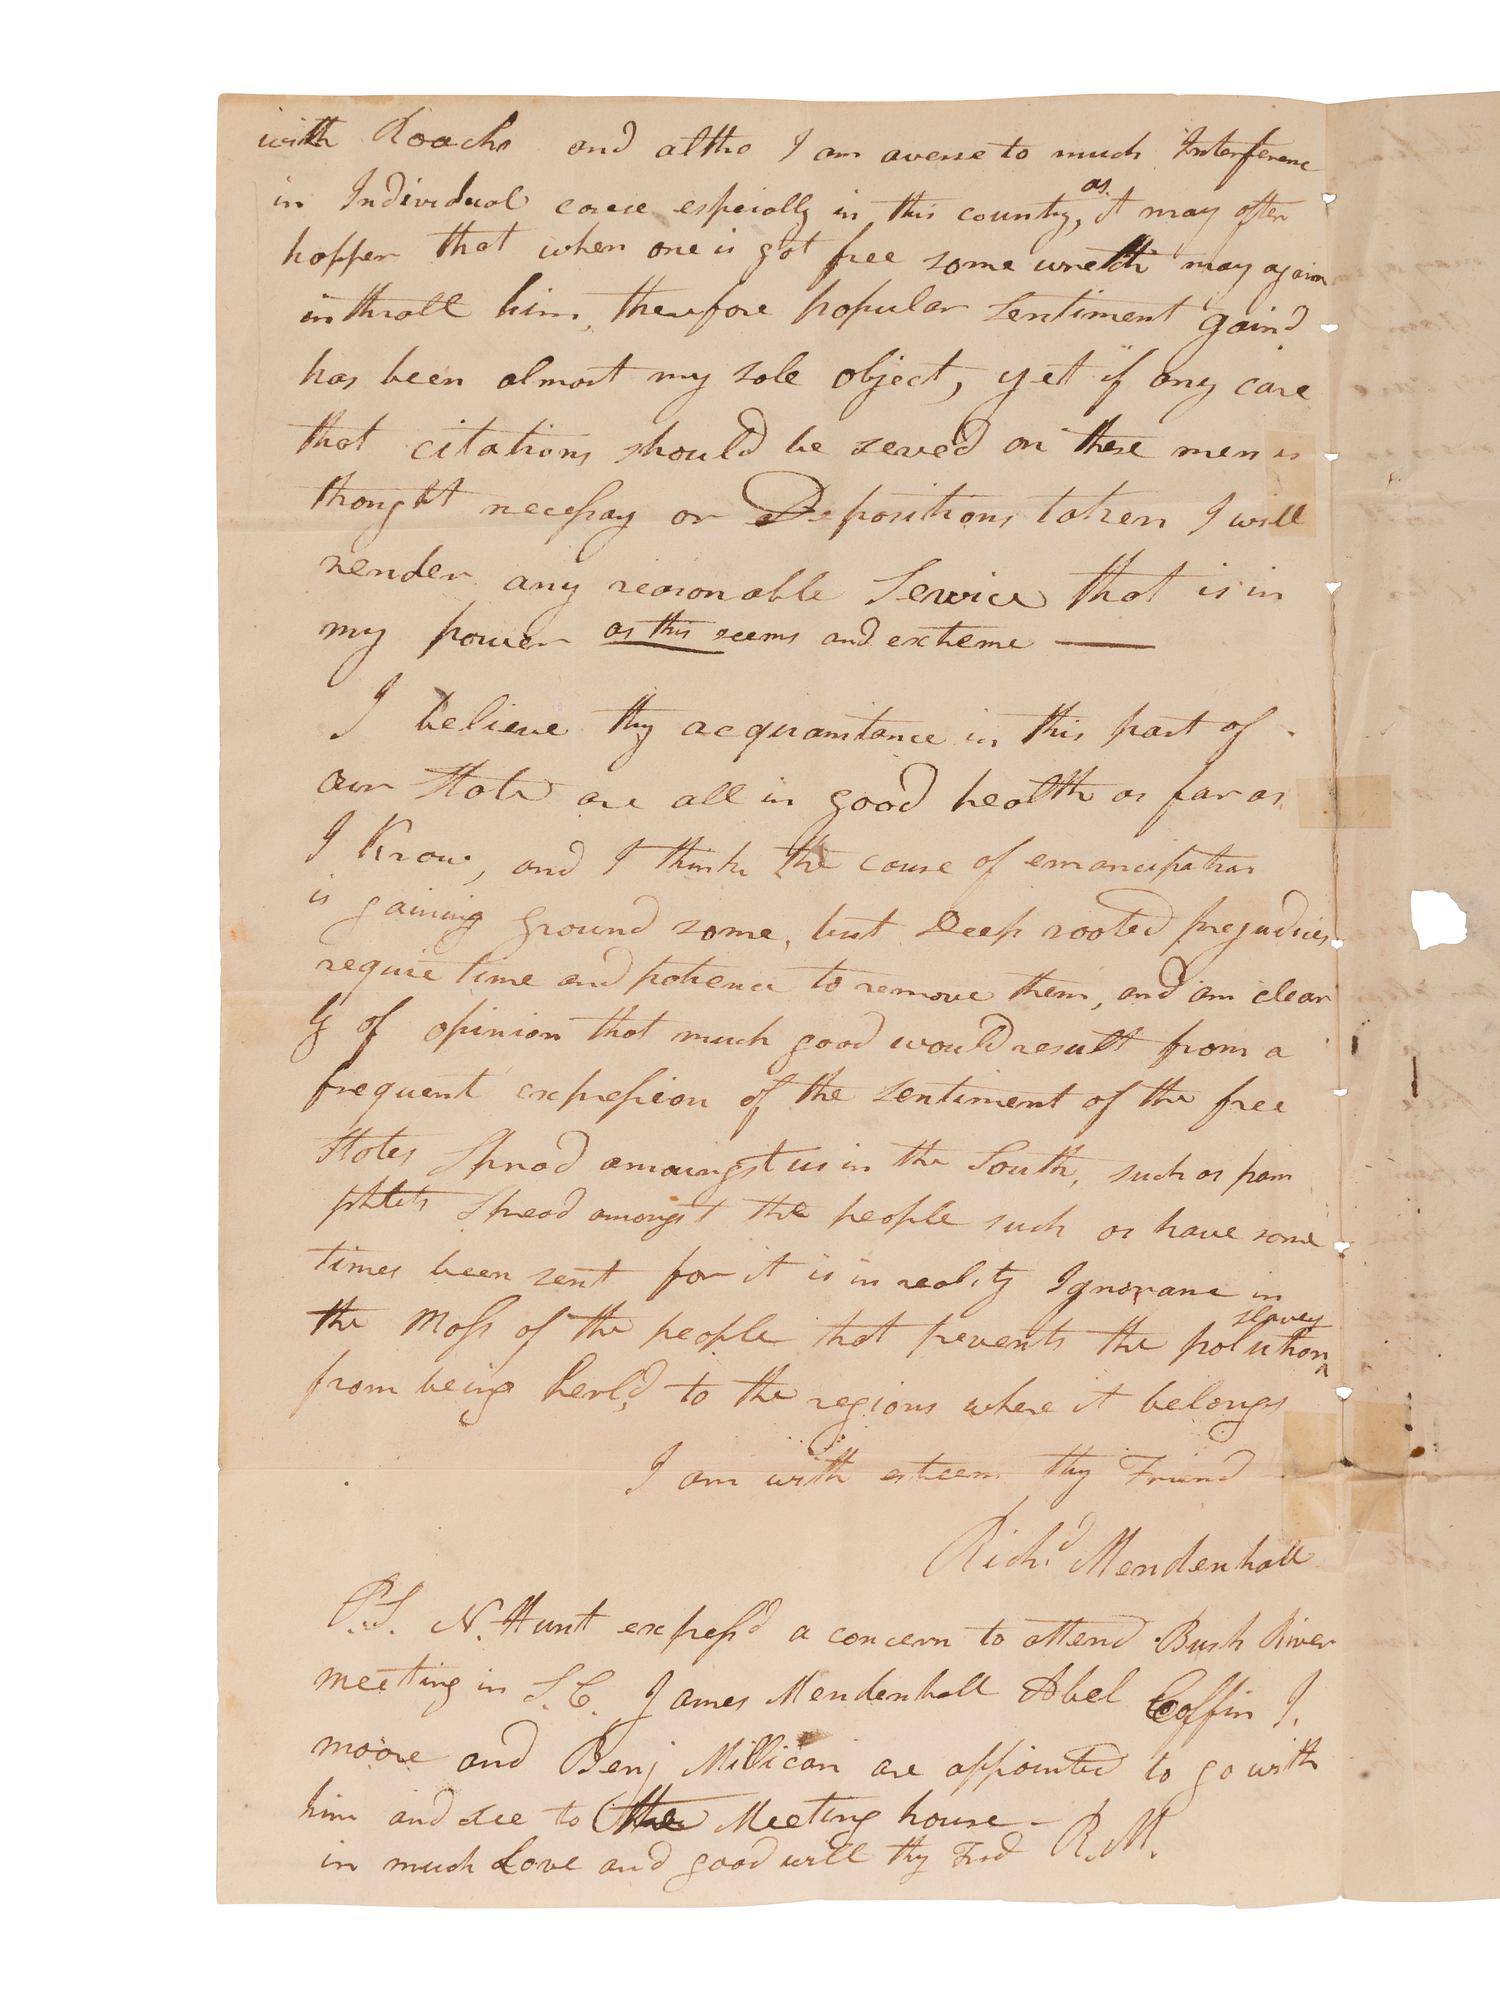 with Roachs and altho I am averse to much Interference
in Individual cases espicially in this country, as it may often
happen that when one is got free some wretch may again
inthrall him, therefore popular sentiment gaind
has been almost my sole object, yet if any case
that citations should be served on these men is
thought necessay or Depositions taken I will
render any reasonable Service that is in
my power as this seems and exteme —
I believe thy acquamtance in this part of
our State are all in good health as far as
I Know, and I think the cause of emancipation
is gaining ground some, but Deep rooted prejudices
requie time and patience to remove them, and am clear
ly of opinion that much good would result from a
frequent expression of the sentiment of the free
States Spread amoungst us in the South, such as pam
phlets Spread amongst the people such as have some
times been sent for it is in reality Ignorance in
the Mass of the people that prevents the polution slavey
from being herld, to the regions where it belongs
I am with esteem thy Friend
Richd Mendenhall
P.S. N. Hunt express'd a concern to attend Bush River
meeting in S.C. James Mendenhall Abel Coffin J.
moore and Benj Millican are appointed to go with
him and see to the Meeting house –
in much Love and good will thy Frd R.M.